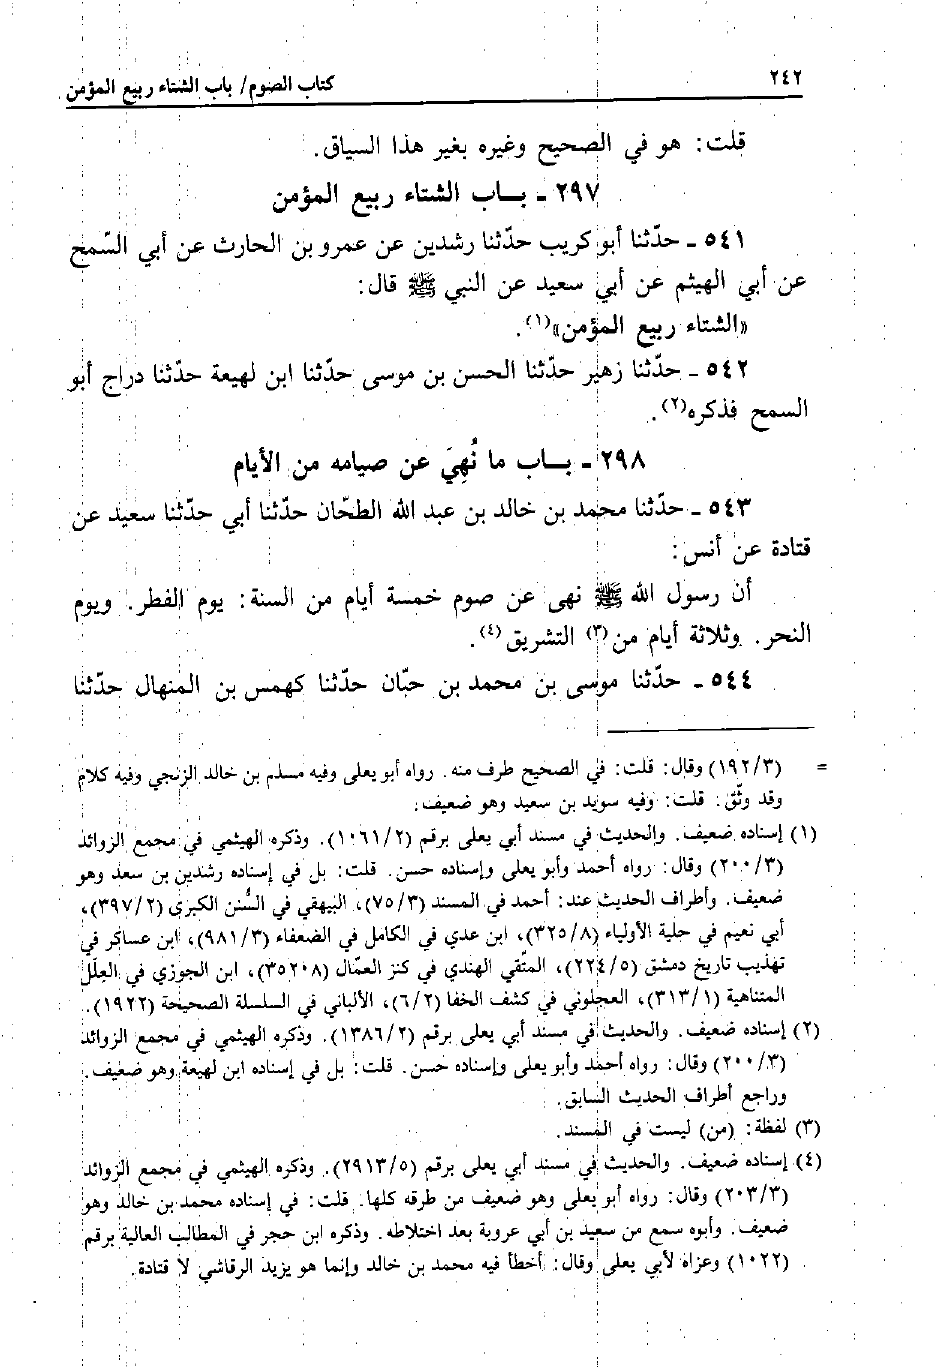 ٢٤٢
كتاب الصوم/ باب الشتاء ربيع المؤمن
قلت: هو في الصحيح وغيره بغير هذا السياق.
٢٩٧ - بـاب الشتاء ربيع المؤمن
٥٤١ - حدّثنا أبو كريب حدّثنا رشدين عن عمرو بن الحارث عن أبي السّمح
عن أبي الهيثم عن أبي سعيد عن النبي ﷺ قال:
«الشتاء ربيع المؤمن»(١).
٥٤٢ - حدّثنا زهير حدّثنا الحسن بن موسى حدّثنا ابن لهيعة حدّثنا دراج أبو
السمح فذكره(٢).
٢٩٨ - بـاب ما نُهِيَ عن صيامه من الأيام
٥٤٣ - حدّثنا محمد بن خالد بن عبد الله الطحّان حدّثنا أبي حدّثنا سعيد عن
قتادة عن أنس:
أن رسول الله ﷺ نهى عن صوم خمسة أيام من السنة: يوم الفطر. ويوم
النحر. وثلاثة أيام من(٣) التشريق(٤).
٥٤٤ - حدّثنا موسى بن محمد بن حبّان حدّثنا كهمس بن المنهال حدّثنا
= (١٩٢/٣) وقال: قلت: في الصحيح طرف منه. رواه أبو يعلى وفيه مسلم بن خالد الزنجي وفيه كلام
وقد وثّق. قلت: وفيه سويد بن سعيد وهو ضعيف.
(١) إسناده ضعيف. والحديث في مسند أبي يعلى برقم (١٠٦١/٢). وذكره الهيثمي في مجمع الزوائد
(٢٠٠/٣) وقال: رواه أحمد وأبو يعلى وإسناده حسن. قلت: بل في إسناده رشدين بن سعد وهو
ضعيف. وأطراف الحديث عند: أحمد في المسند (٧٥/٣)، البيهقي في السُّنن الكبرى (٣٩٧/٢)،
أبي نعيم في حلية الأولياء (٣٢٥/٨)، ابن عدي في الكامل في الضعفاء (٩٨١/٣)، ابن عساكر في
تهذيب تاريخ دمشق (٢٢٤/٥)، المتّقي الهندي في كنز العمّال (٣٥٢٠٨)، ابن الجوزي في العِلَل
المتناهية (٣١٣/١)، العجلوني في كشف الخفا (٦/٢)، الألباني في السلسلة الصحيحة (١٩٢٢).
(٢) إسناده ضعيف. والحديث في مسند أبي يعلى برقم (١٣٨٦/٢). وذكره الهيثمي في مجمع الزوائد
(٢٠٠/٣) وقال: رواه أحمد وأبو يعلى وإسناده حسن. قلت: بل في إسناده ابن لهيعة وهو ضعيف.
وراجع أطراف الحديث السابق.
(٣) لفظة: (من) ليست في المسند.
(٤) إسناده ضعيف. والحديث في مسند أبي يعلى برقم (٢٩١٣/٥). وذكره الهيثمي في مجمع الزوائد
(٢٠٣/٣) وقال: رواه أبو يعلى وهو ضعيف من طرقه كلها. قلت: في إسناده محمد بن خالد وهو
ضعيف. وأبوه سمع من سعيد بن أبي عروبة بعد اختلاطه. وذكره ابن حجر في المطالب العالية برقم
(١٠٢٢) وعزاه لأبي يعلى وقال: أخطأ فيه محمد بن خالد وإنما هو يزيد الرقاشي لا قتادة.